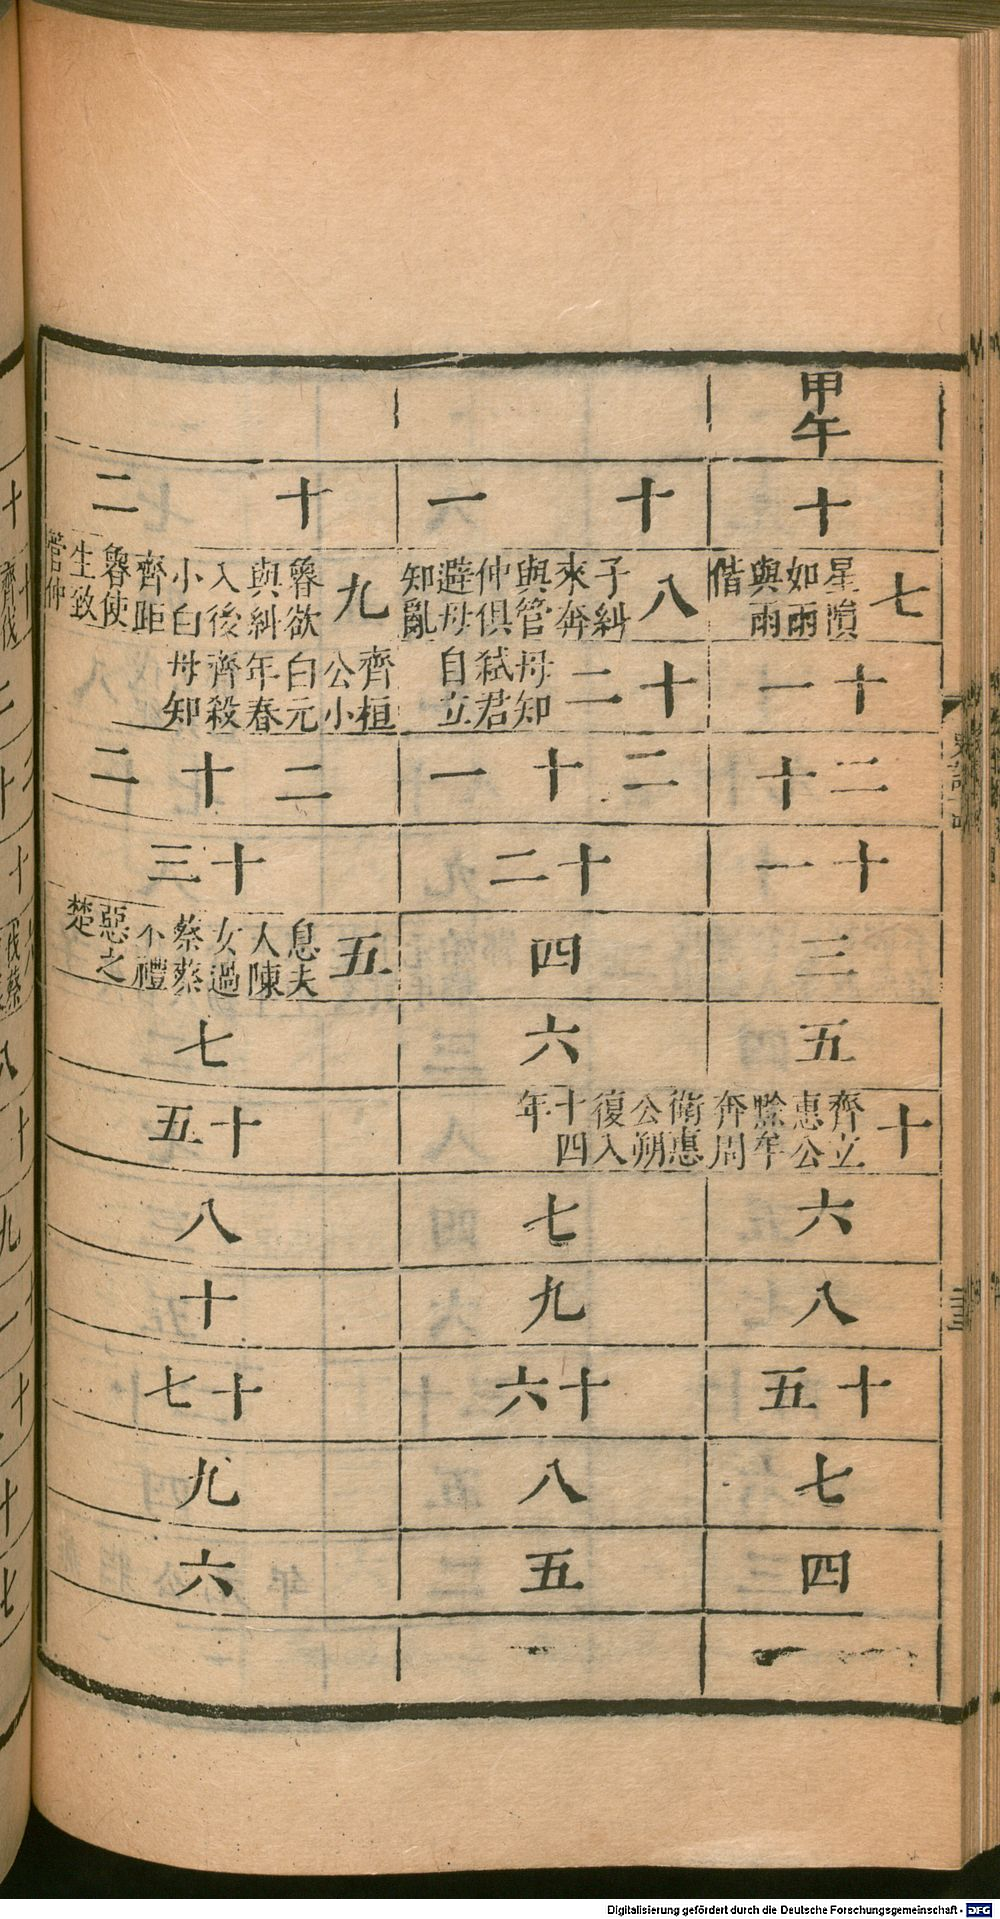 甲午
十
七 星隕如雨與雨偕
十一
二十
十一
三
五
十 齊立惠公黔牟奔周 衛惠公朔復入十四年
六
八
十五
七
四
十一
八 子糾來奔與管仲俱避母知亂
十二 母知弒君自立
二十一
十二
四
六
七
九
十六
八
五
十二
九 魯欲與糾入後小白齊距魯使生致管仲
齊桓公小白元年春齊殺母知
二十二
十三
五 息夫人陳女過蔡蔡不禮惡之楚
七
十五
八
十
十七
九
六
Digitalisierung gefördert durch die Deutsche Forschungsgemeinschaft - DFG